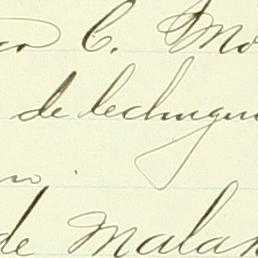 C. Mo
de lechugui
de Malan